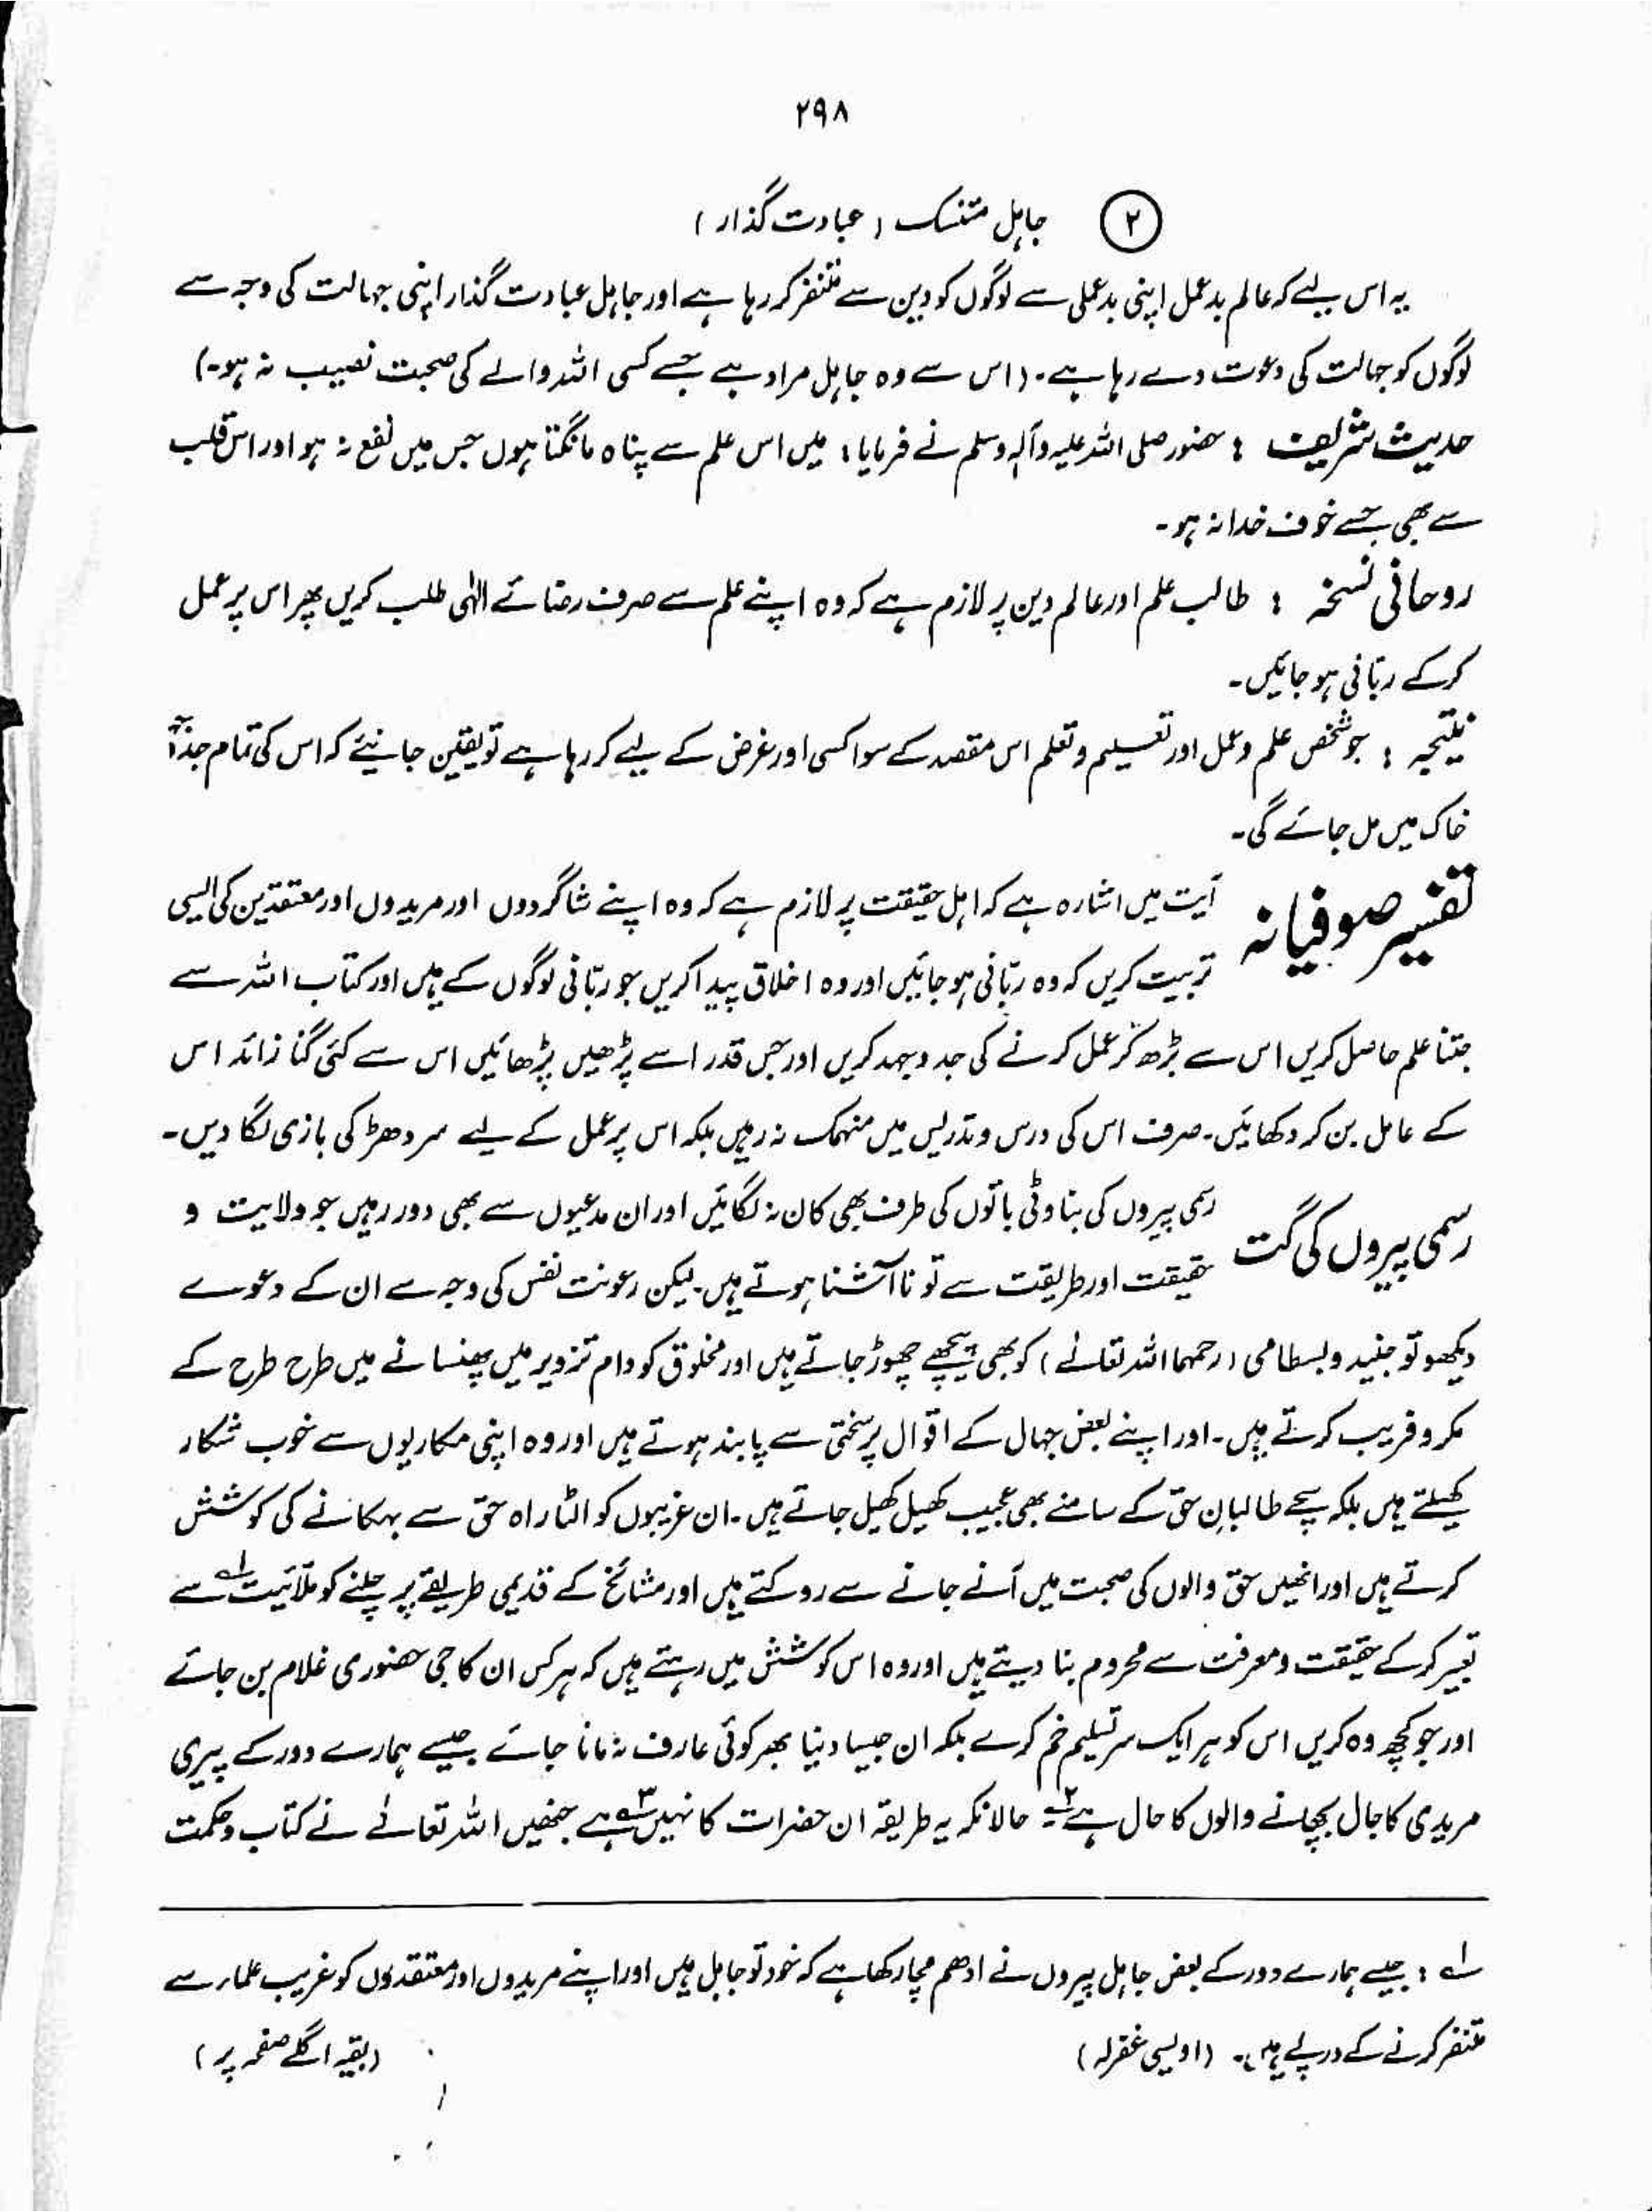 ۲۹۸
② جاہل متنسک (عبادت گذار)
یہ اس لیے کہ عالم بدعمل اپنی بدعملی سے لوگوں کو دین سے متنفر کر رہا ہے اور جاہل عبادت گذار اپنی جہالت کی وجہ سے
لوگوں کو جہالت کی دعوت دے رہا ہے۔ (اس سے وہ جاہل مراد ہے جسے کسی اللہ والے کی صحبت نصیب نہ ہو۔)
حدیث شریف : حضور صلی اللہ علیہ وآلہٖ وسلم نے فرمایا: میں اس علم سے پناہ مانگتا ہوں جس میں نفع نہ ہو اور اس قلب
سے بھی جسے خوف خدا نہ ہو۔
روحانی نسخہ : طالب علم اور عالم دین پر لازم ہے کہ وہ اپنے علم سے صرف رضائے الٰہی طلب کریں پھر اس پر عمل
کرکے ربّانی ہو جائیں۔
نتیجہ : جو شخص علم و عمل اور تعلیم و تعلم اس مقصد کے سوا کسی اور غرض کے لیے کر رہا ہے تو یقین جانیئے کہ اس کی تمام
خاک میں مل جائے گی۔
تفسیر صوفیانہ آیت میں اشارہ ہے کہ اہل حقیقت پر لازم ہے کہ وہ اپنے شاگردوں اور مریدوں اور معتقدین کی ایسی
تربیت کریں کہ وہ ربّانی ہو جائیں اور وہ اخلاق پیدا کریں جو ربّانی لوگوں کے ہیں اور کتاب اللہ سے
جتنا علم حاصل کریں اس سے بڑھ کر عمل کرنے کی جدوجہد کریں اور جس قدر اسے پڑھیں پڑھائیں اس سے کئی گنا زائد اس
کے عامل بن کر دکھائیں۔ صرف اس کی درس و تدریس میں منہمک نہ رہیں بلکہ اس پر عمل کے لیے سر دھڑ کی بازی لگا دیں۔
رسمی پیروں کی گت رسمی پیروں کی بناوٹی باتوں کی طرف بھی کان نہ لگائیں اور ان مدعیوں سے بھی دور رہیں جو ولایت و
حقیقت اور طریقت سے تو نا آشنا ہوتے ہیں۔ لیکن رعونت نفس کی وجہ سے ان کے دعوے
دیکھو تو جنید و بسطامی (رحمہما اللہ تعالےٰ) کو بھی پیچھے چھوڑ جاتے ہیں اور مخلوق کو دام تزویر میں پھنسانے میں طرح طرح کے
مکر و فریب کرتے ہیں۔ اور اپنے بعض جہال کے اقوال پر سختی سے پابند ہوتے ہیں اور وہ اپنی مکاریوں سے خوب شکار
کھیلتے ہیں بلکہ سچے طالبانِ حق کے سامنے بھی عجیب کھیل کھیل جاتے ہیں۔ ان غریبوں کو الٹا راہ حق سے بہکانے کی کوشش
کرتے ہیں اور انھیں حق والوں کی صحبت میں آنے جانے سے روکتے ہیں اور مشائخ کے قدیمی طریقے پر چلنے کو ملّائیت ۱؎ سے
تعبیر کرکے حقیقت و معرفت سے محروم بنا دیتے ہیں اور وہ اس کوشش میں رہتے ہیں کہ ہر کس ان کا جی حضوری غلام بن جائے
اور جو کچھ وہ کریں اس کو ہر ایک سر تسلیم خم کرے بلکہ ان جیسا دنیا بھر کوئی عارف نہ مانا جائے جیسے ہمارے دور کے پیری
مریدی کا جال بچھانے والوں کا حال ہے ۲؎ حالانکہ یہ طریقہ ان حضرات کا نہیں ۳؎ ہے جنھیں اللہ تعالےٰ نے کتاب و حکمت
۱؎ : جیسے ہمارے دور کے بعض جاہل پیروں نے ادھم مچا رکھا ہے کہ خود تو جاہل ہیں اور اپنے مریدوں اور معتقدوں کو غریب علماء سے
متنفر کرنے کے درپے ہیں۔ (اویسی غفرلہ) (بقیہ اگلے صفحہ پر)